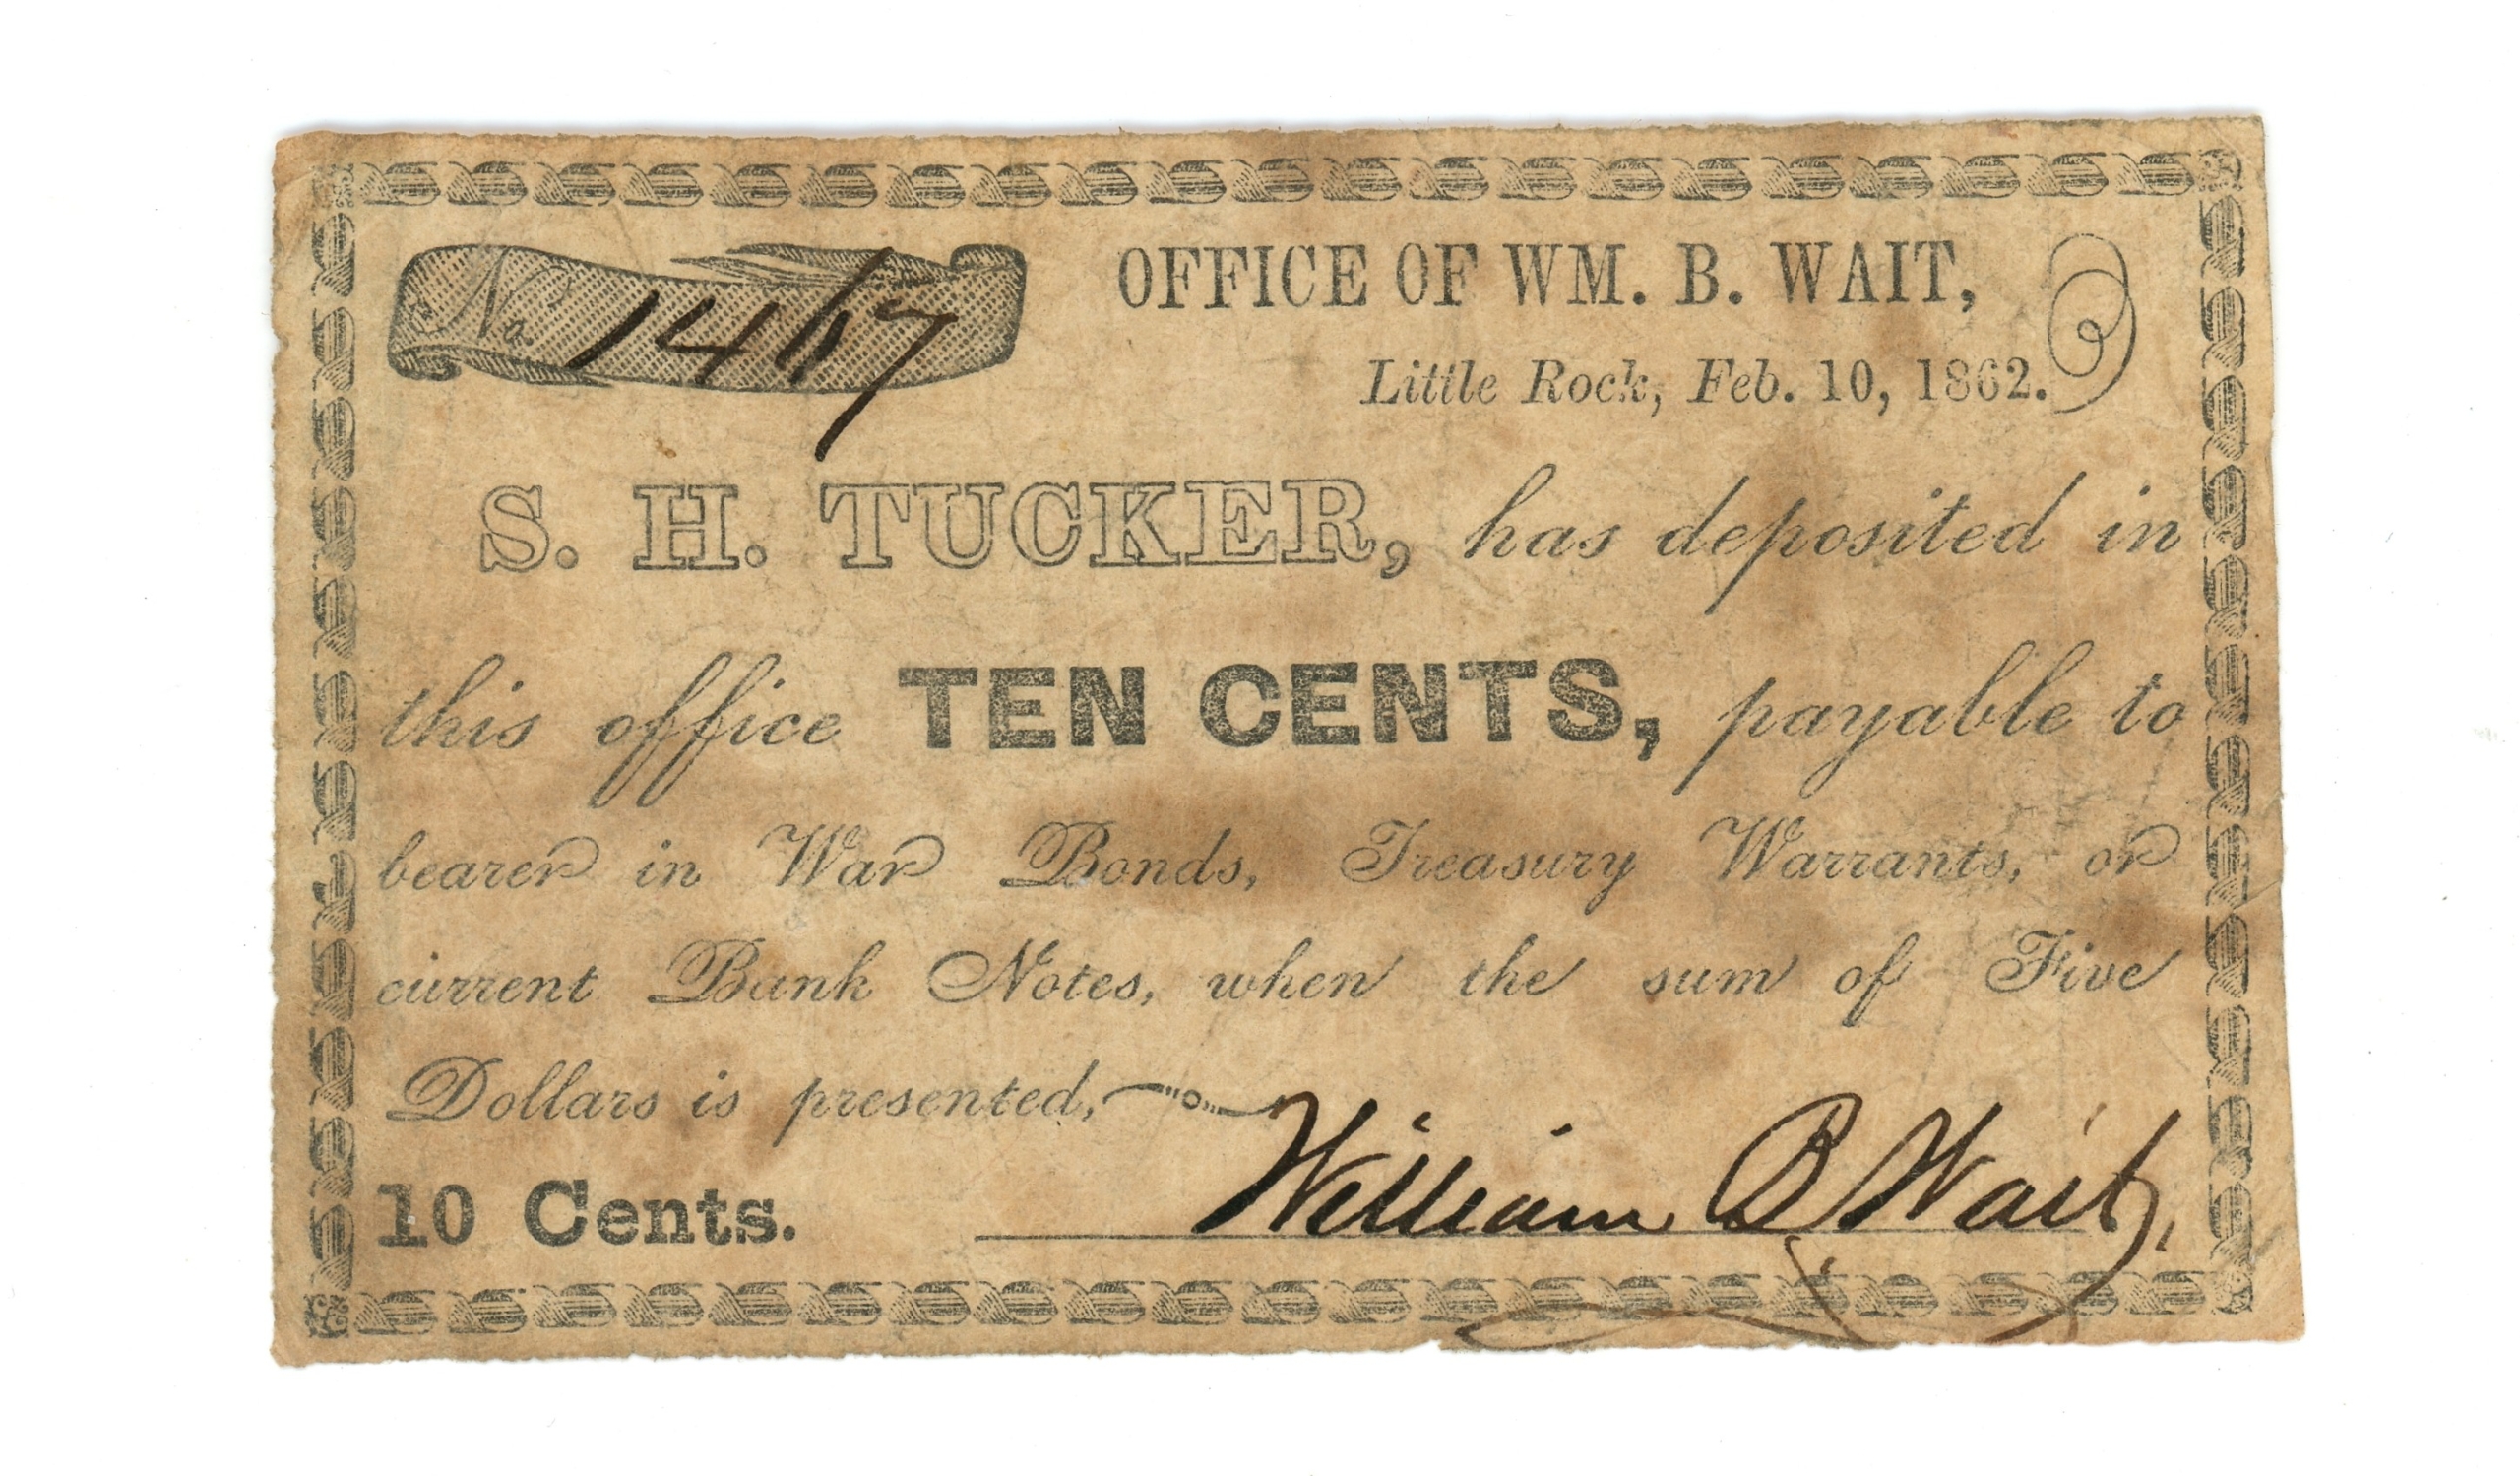 No. 1417
OFFICE OF WM. B. WAIT,
Little Rock, Feb. 10, 1862.
S. H. TUCKER, has deposited in
this office TEN CENTS, payable to
bearer in War Bonds, Treasury Warrants, or
current Bank Notes, when the sum of Five
Dollars is presented,
10 Cents. William B Wait,